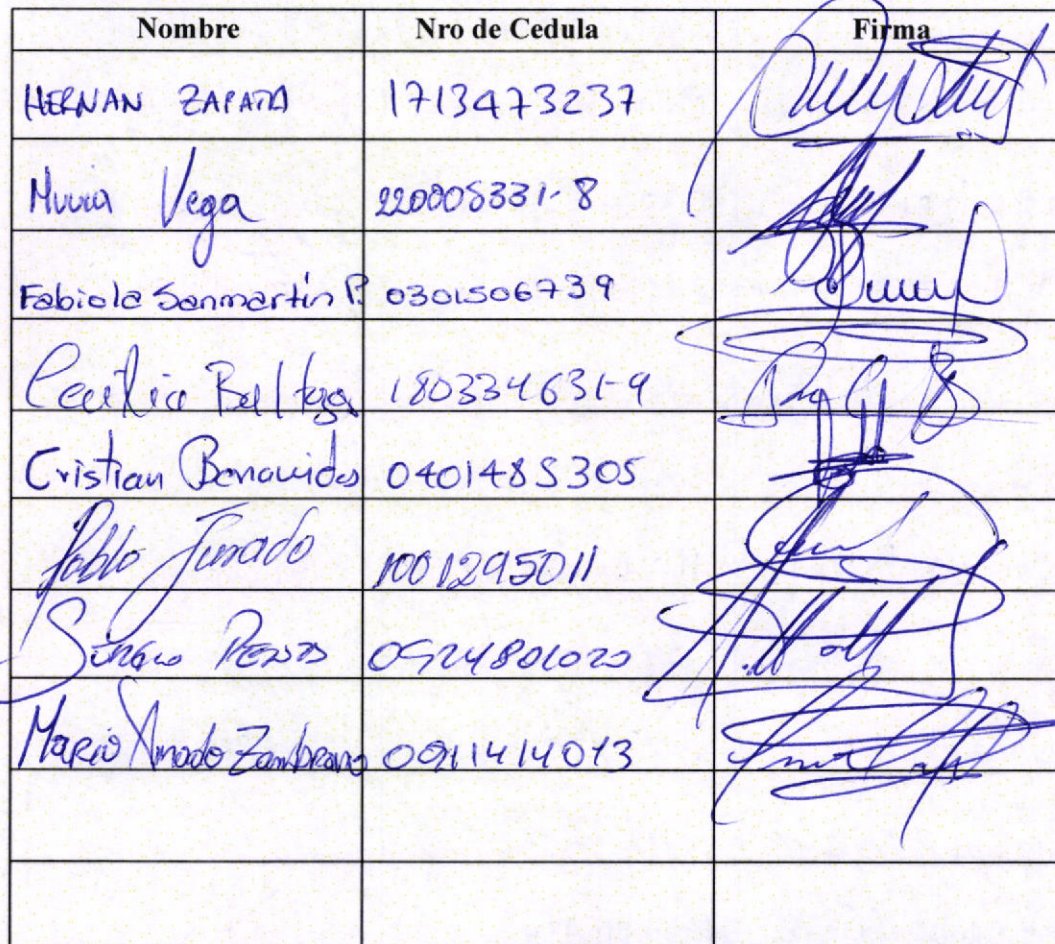 Nombre Nro de Cedula Firma
HERNAN ZAPATA 1713473237
Vega 220005331-8
Fabiola Sanmartín P. 0301506739
Cecilia 180334631-9
Cristian Benavides 0401485305
Pablo Jurado 1001295011
Sergio 0924801020
Mario Amado Zambrano 0911414013